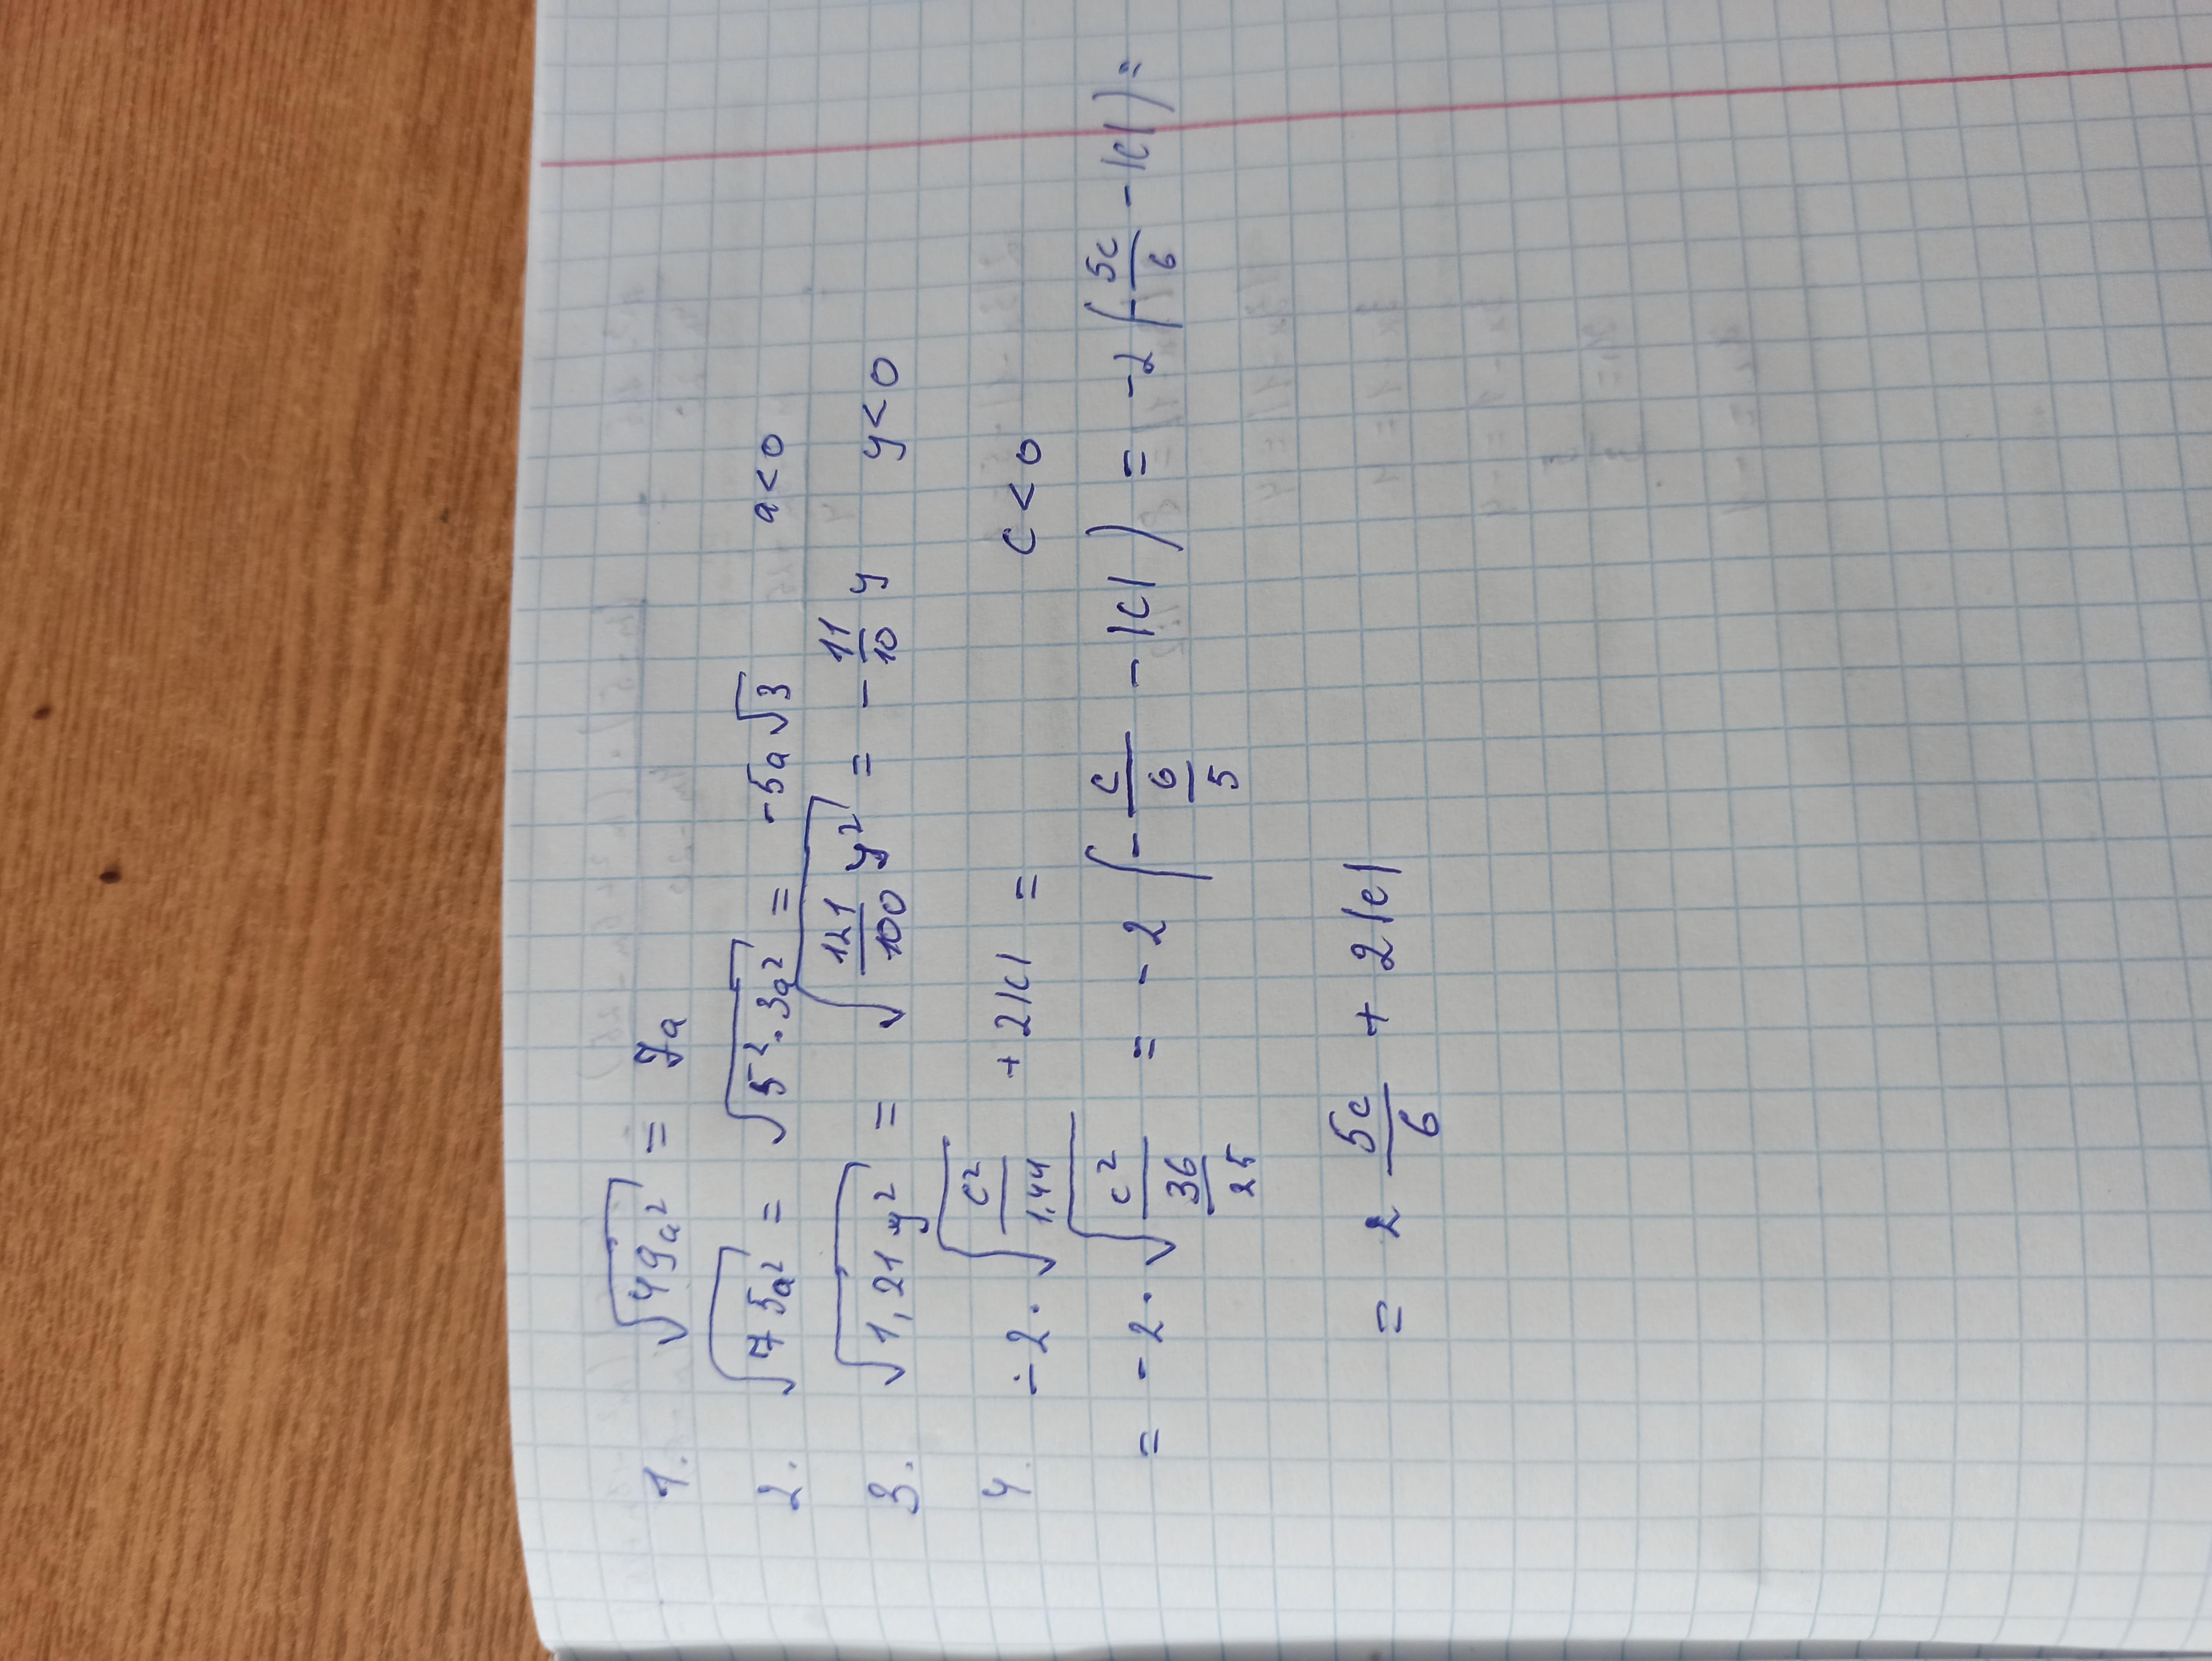 1. √49a² = 7a
2. √75a² = √5²·3a² = -5a√3 a<0
3. √1,21y² = √121/100 y² = -11/10 y y<0
4. -2·√c²/1,44 +2|c| = c<0
= -2·√c²/36/25 = -2(-c/6/5 - |c|) = -2(-5c/6 - |c|) =
= 2 5c/6 + 2|c|